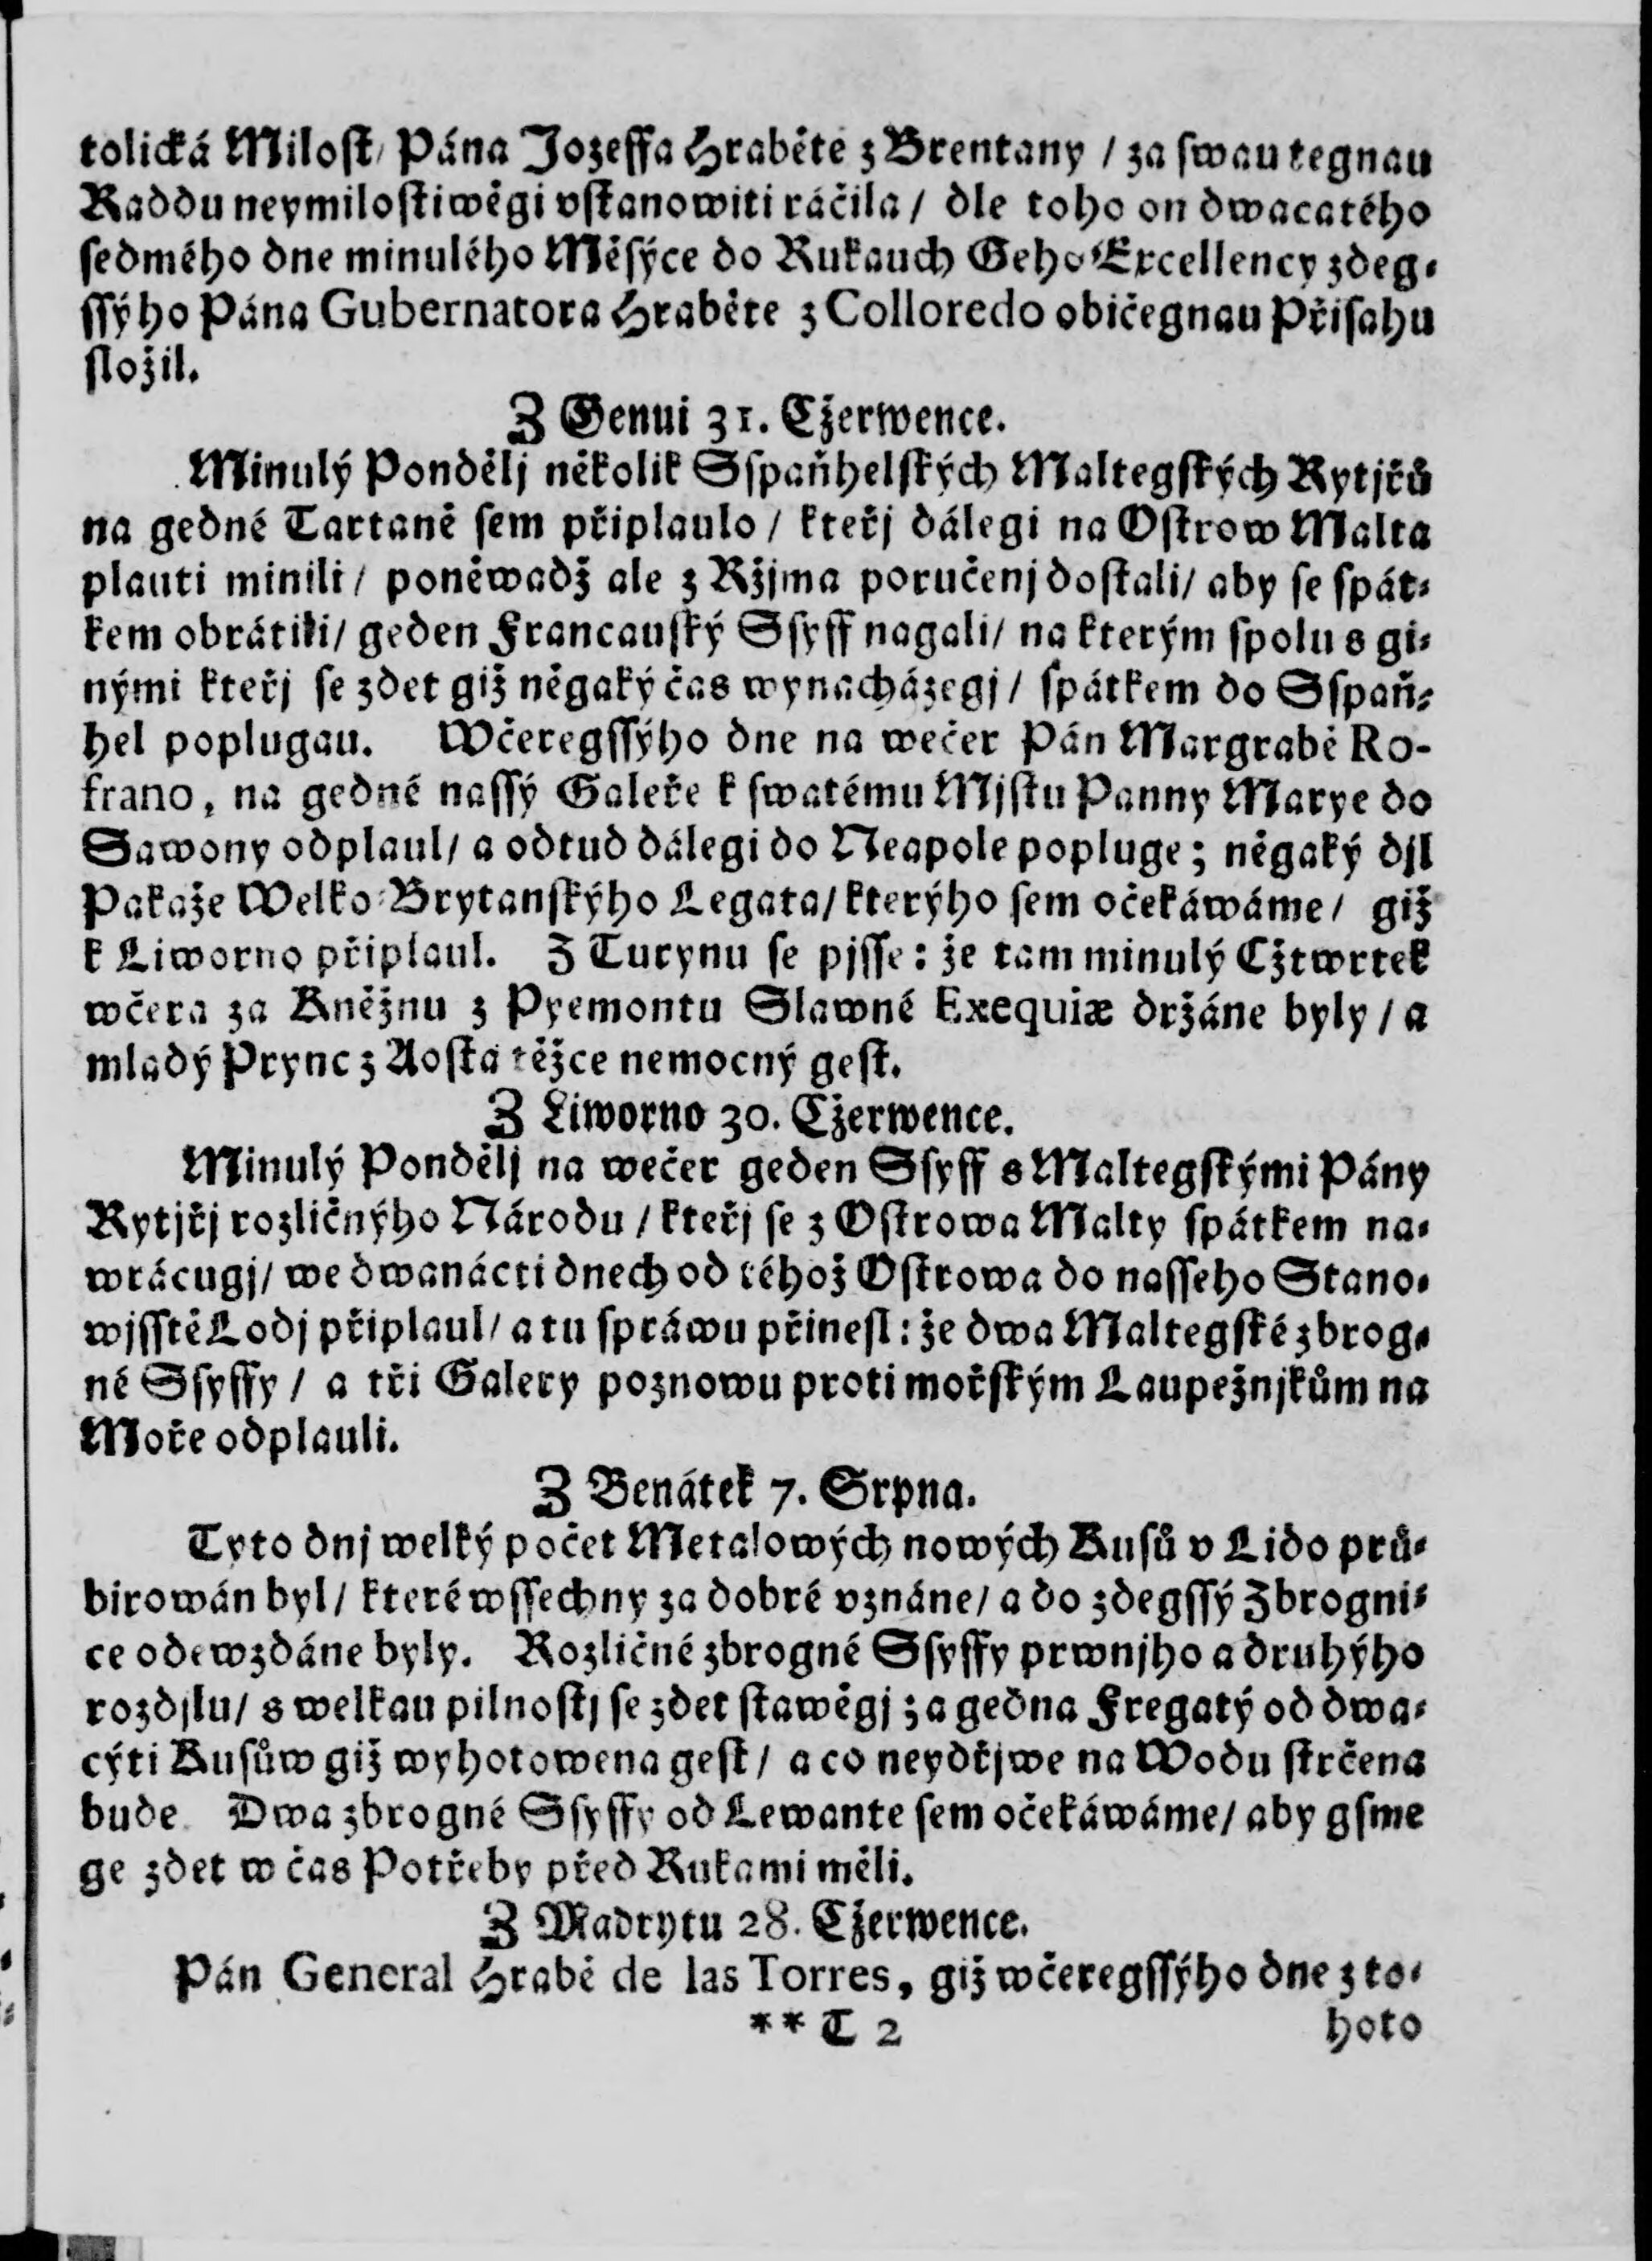 tolická Miloſt/ Pána Jozeffa Hraběte z Brentany / za ſwau tegnau
Raddu neymiloſtiwěgi vſtanowiti ráčila / dle toho on dwacatého
ſedmého dne minulého Měſýce do Rukauch Geho Excellency zdeg-
ſſýho Pána Gubernatora Hraběte z Colloredo običegnau Přiſahu
ſložil.
Z Genui 31. Cžerwence.
Minulý Pondělj několik Sſpaňhelſkých Maltegſkých Rytjřů
na gedné Tartaně ſem připlaulo / kteřj dálegi na Oſtrow Malta
plauti minili / poněwadž ale z Ržjma poručenj doſtali / aby ſe ſpát-
kem obrátili / geden Francauſký Sſyff nagali / na kterým ſpolu s gi-
nými kteřj ſe zdet giž něgaký čas wynacházegj / ſpátkem do Sſpaň-
hel poplugau. Wčeregſſýho dne na wečer Pán Margrabě Ro-
frano, na gedné naſſý Galeře k ſwatému Mjſtu Panny Marye do
Sawony odplaul / a odtud dálegi do Neapole popluge; něgaký djl
Pakaže Welko-Brytanſkýho Legata / kterýho ſem očekáwáme / giž
k Liworno připlaul. Z Turynu ſe pjſſe: že tam minulý Cžtwrtek
wčera za Kněžnu z Pyemontu Slawné Exequiæ držáne byly / a
mladý Prync z Aoſta těžce nemocný geſt.
Z Liworno 30. Cžerwence.
Minulý Pondělj na wečer geden Sſyff s Maltegſkými Pány
Rytjřj rozličnýho Národu / kteřj ſe z Oſtrowa Malty ſpátkem na-
wrácugj / we dwanácti dnech od téhož Oſtrowa do naſſeho Stano-
wjſſtě Lodj připlaul / a tu ſpráwu přineſl: že dwa Maltegſké zbrog-
né Sſyffy / a tři Galery poznowu proti mořſkým Laupežnjkům na
Moře odplauli.
Z Benátek 7. Srpna.
Tyto dnj welký počet Metalowých nowých Kuſů v Lido prů-
birowán byl / které wſſechny za dobré vznáne / a do zdegſſý Zbrogni-
ce odewzdáne byly. Rozličné zbrogné Sſyffy prwnjho a druhýho
rozdjlu / s welkau pilnoſtj ſe zdet ſtawěgj; a gedna Fregatý od dwa-
cýti Kuſůw giž wyhotowena geſt / a co neydřjwe na Wodu ſtrčena
bude. Dwa zbrogné Sſyffy od Lewante ſem očekáwáme / aby gſme
ge zdet w čas Potřeby před Rukami měli.
Z Madrytu 28. Cžerwence.
Pán General Hrabě de las Torres, giž wčeregſſýho dne z to-
** T 2 hoto